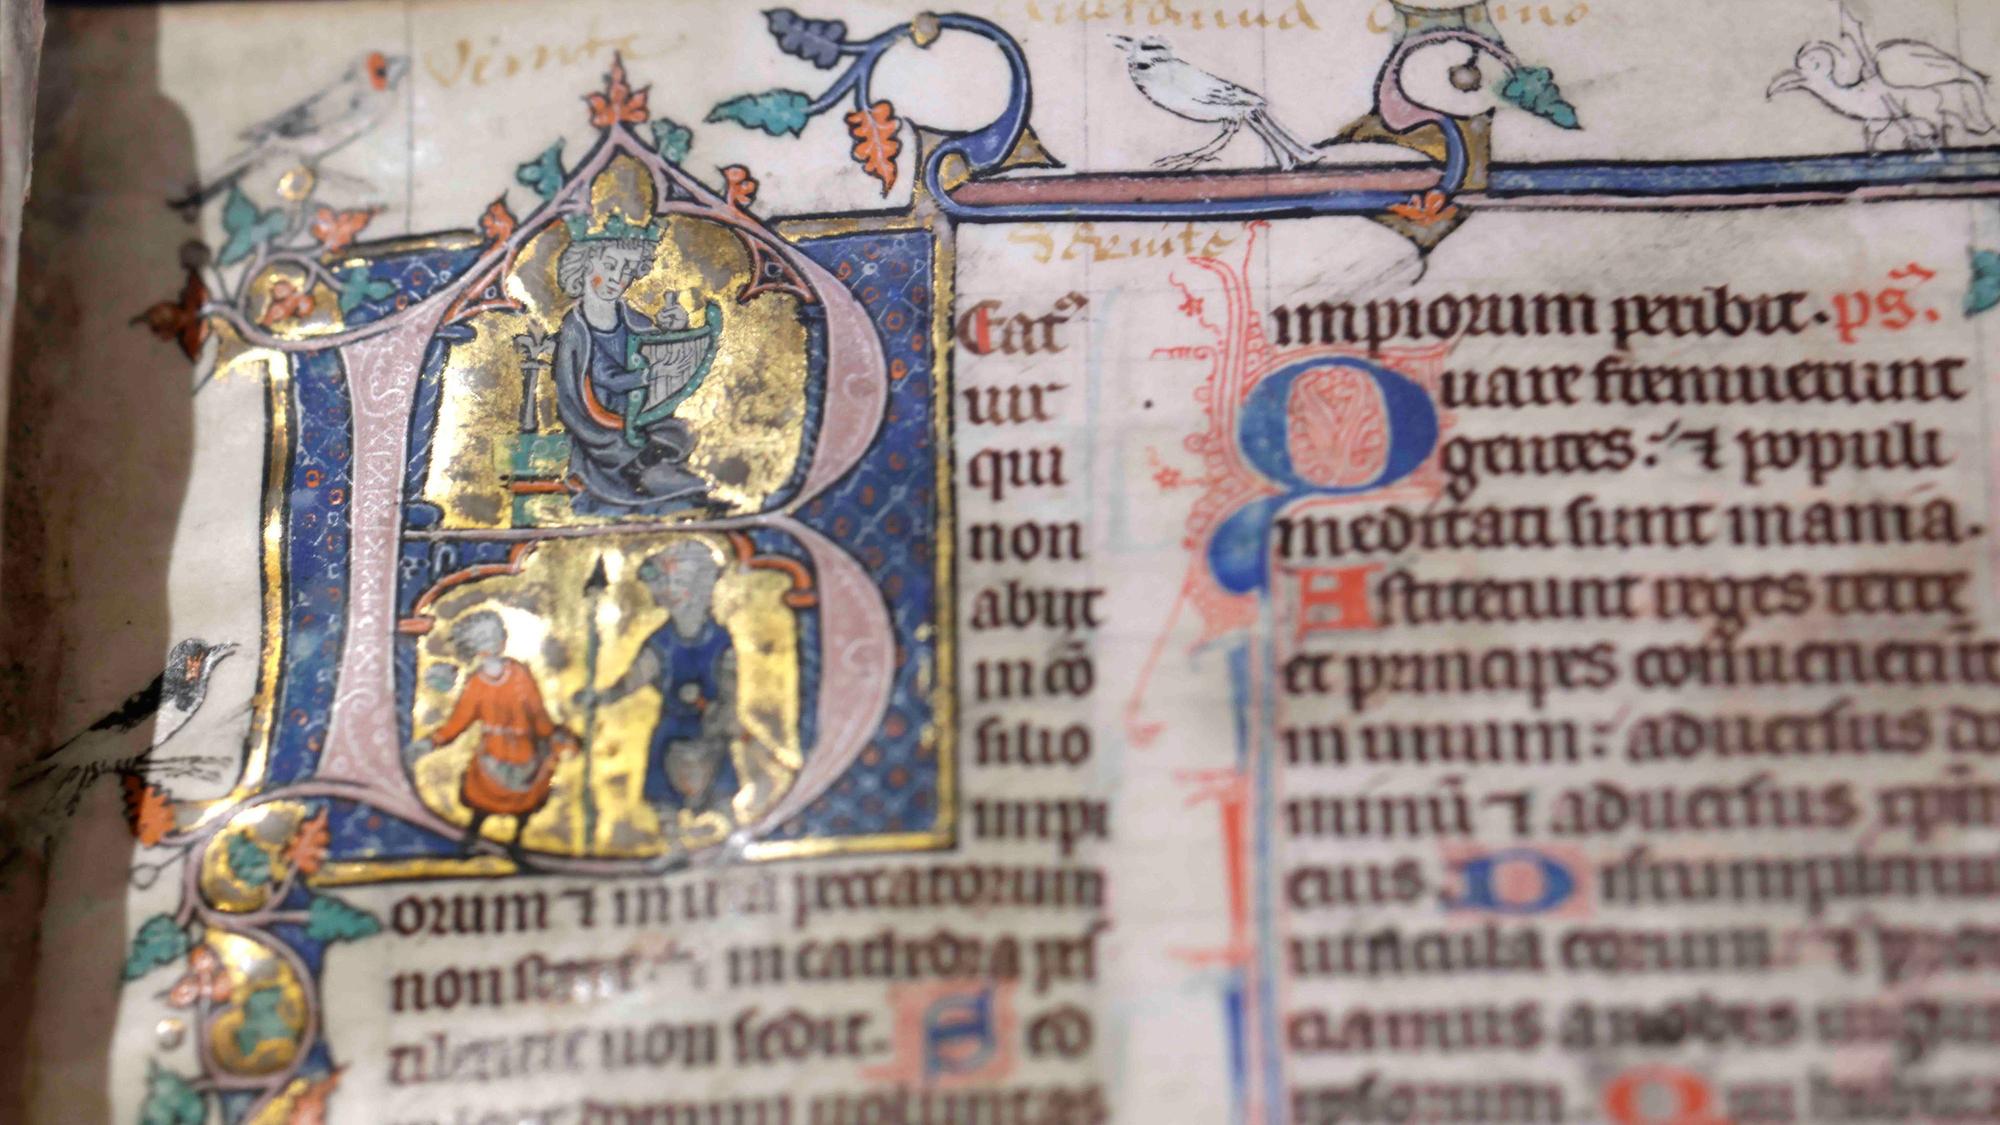 Venite
Seruite
B
Eat⁹
uir
qui
non
abijt
in cō
silio
impi
orum ⁊ in uia peccatorum
non stetit: ⁊ in cathedra pes
tilentie non sedit. Sed
domini uoluntas
impiorum peribit. ps̃.
Quare fremuerunt
gentes: ⁊ populi
meditati sunt inania.
Astiterunt reges terre
et principes conuenerūt
in unum: aduersus do
minū ⁊ aduersus xp̄m
eius. Dirumpamus
uincula eorum: ⁊
iugum
ipsorum. Qui habitat